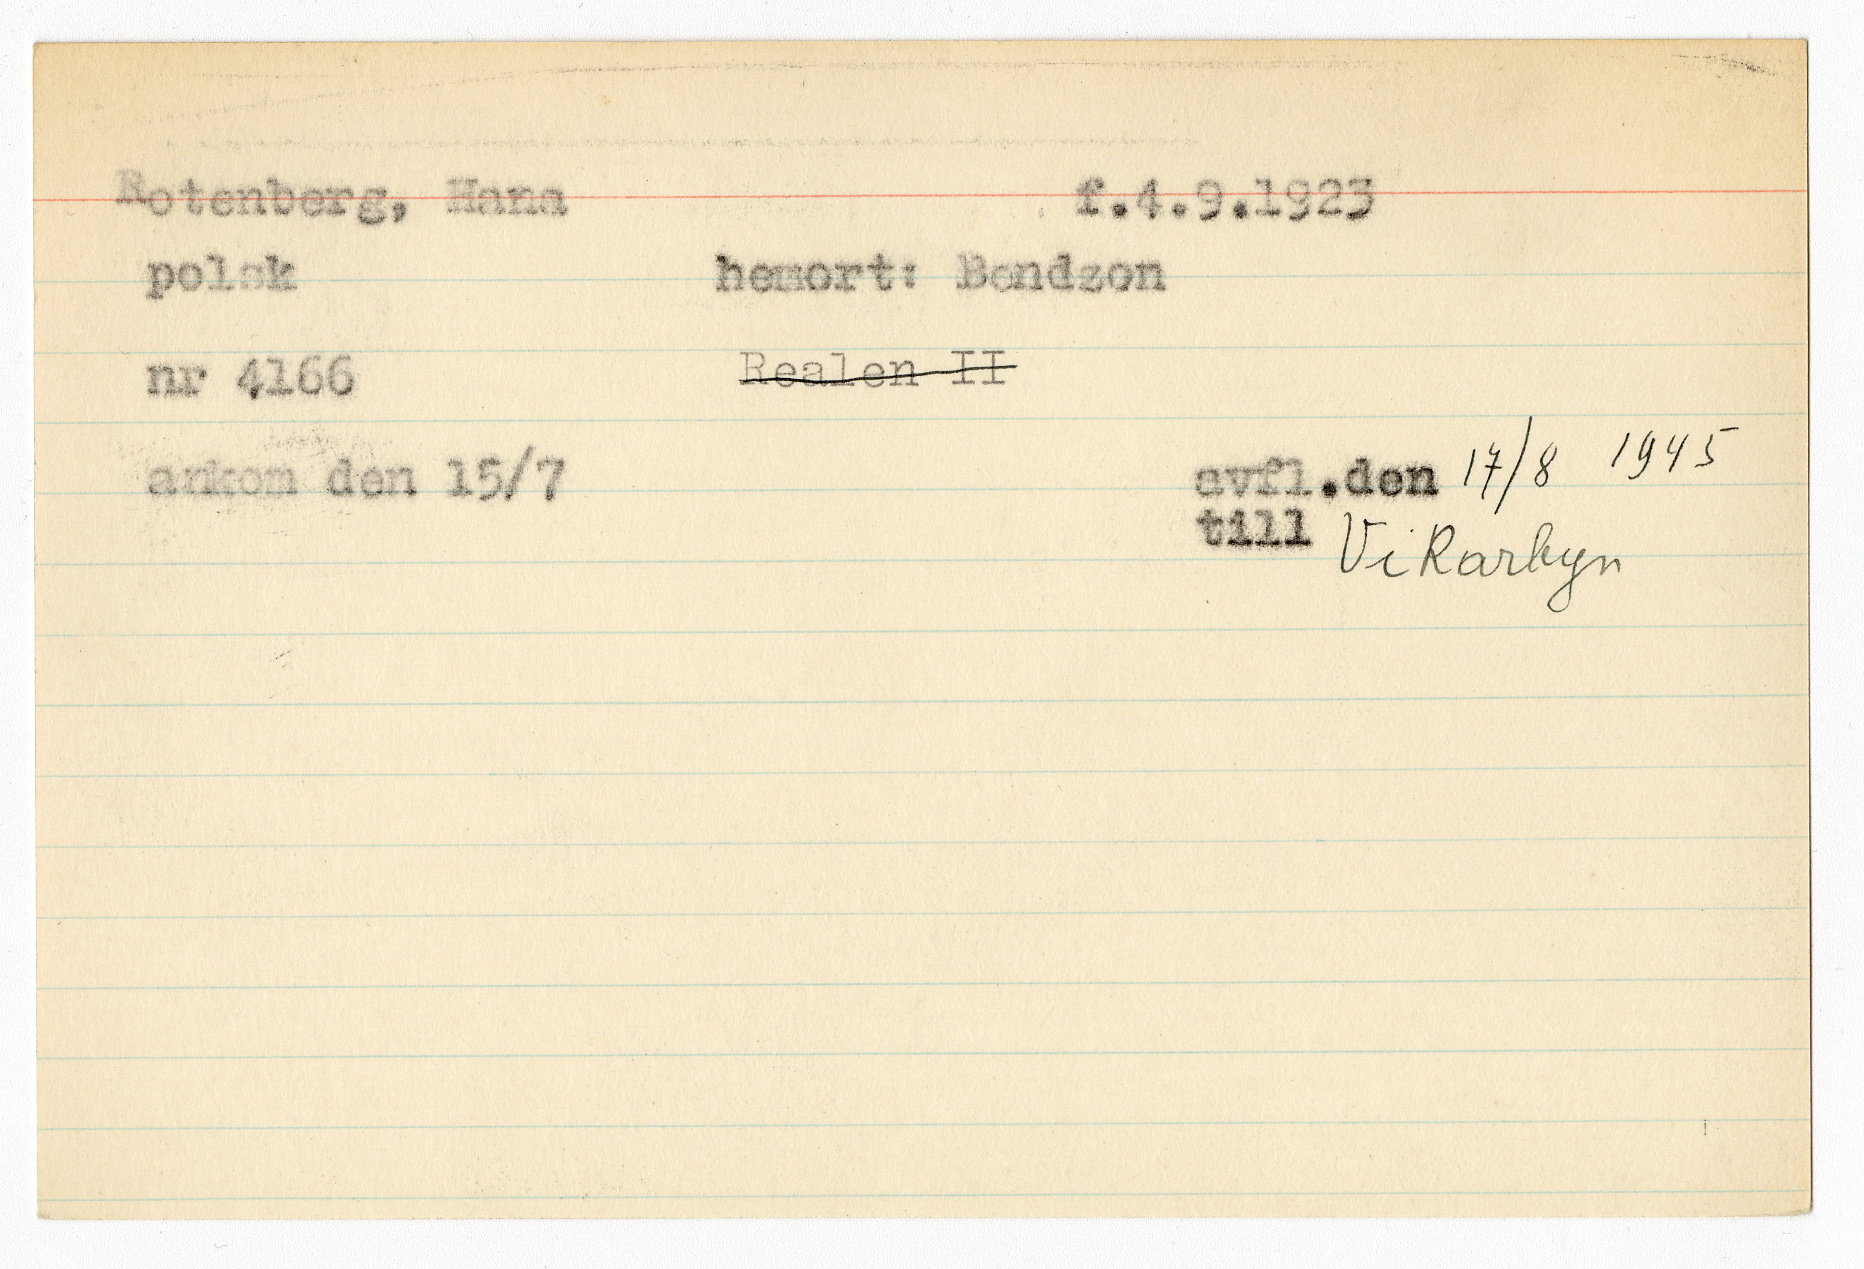 Rotenberg, Hana f.4.9.1923
polsk hemort: Bendzon
nr 4166 Realen II
ankom den 15/7 avfl.den 17/8 1945
till Vikarbyn